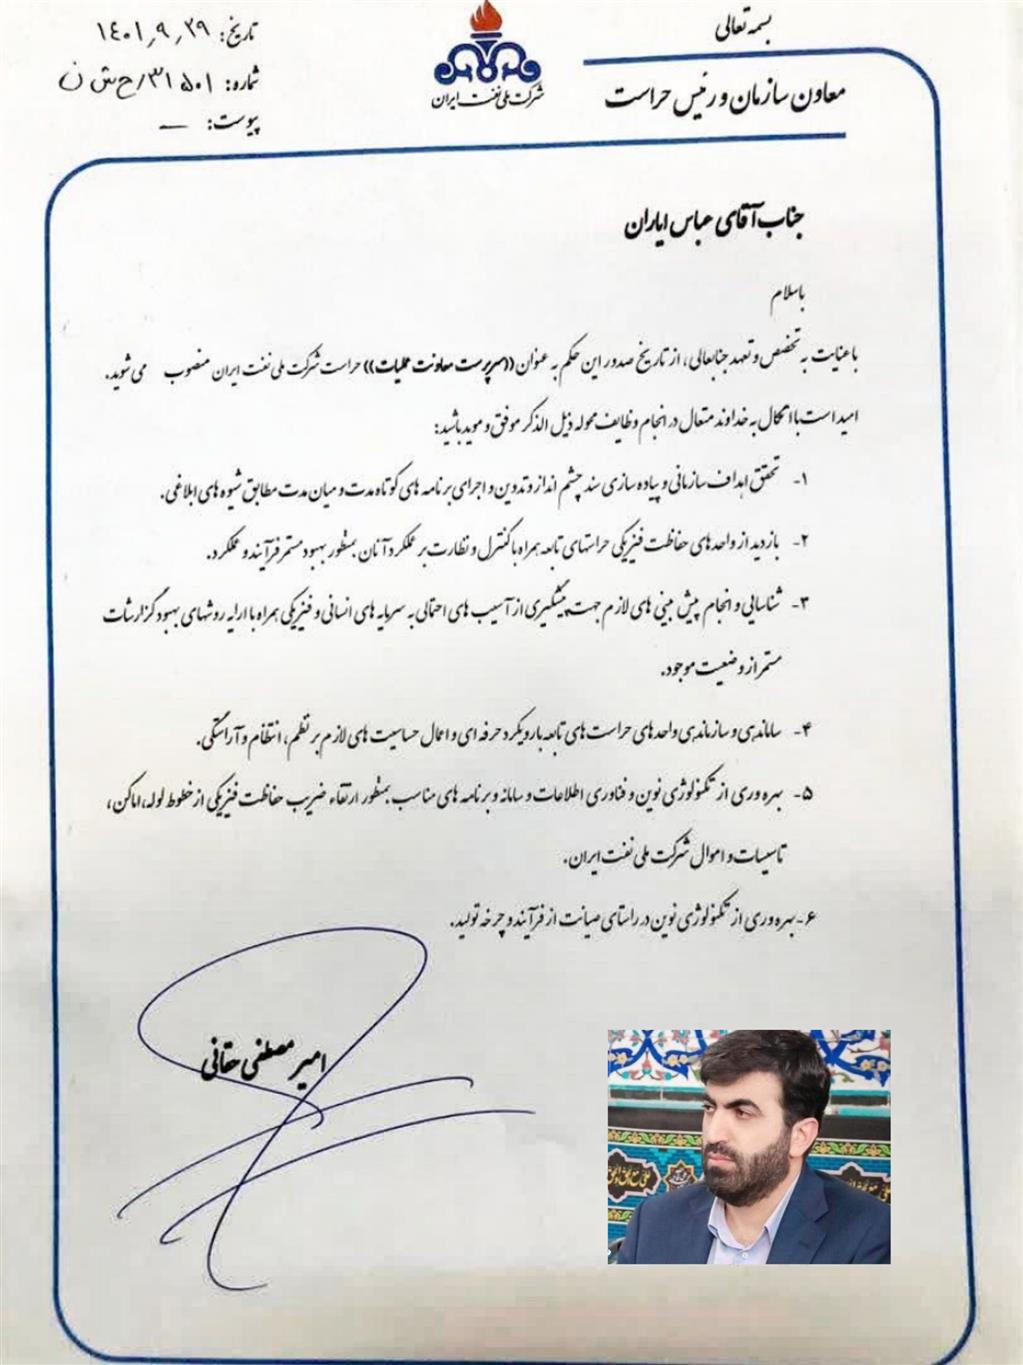 بسمه تعالی
معاون سازمان و رئیس حراست
شرکت ملی نفت ایران
تاریخ: ۱۴۰۱٫۹٫۲۹
شماره: ۳۱۵۰۱/ح ش ن
پیوست: —
جناب آقای عباس ایاران
باسلام
با عنایت به تخصص و تعهد جنابعالی، از تاریخ صدور این حکم به عنوان ((سرپرست معاونت عملیات)) حراست شرکت ملی نفت ایران منصوب می شوید.
امید است با اتکال به خداوند متعال در انجام وظایف محوله ذیل الذکر موفق و موید باشید:
۱- تحقق اهداف سازمانی و پیاده سازی سند چشم انداز و تدوین و اجرای برنامه های کوتاه مدت و میان مدت مطابق شیوه های ابلاغی.
۲- بازدید از واحدهای حفاظت فیزیکی حراستهای تابعه همراه با کنترل و نظارت بر عملکرد آنان بمنظور بهبود مستمر فرآیند و عملکرد.
۳- شناسایی و انجام پیش بینی های لازم جهت پیشگیری از آسیب های احتمالی به سرمایه های انسانی و فیزیکی همراه با ارایه روشهای بهبود گزارشات
مستمر از وضعیت موجود.
۴- ساماندهی و سازماندهی واحدهای حراست های تابعه با رویکرد حرفه ای و اعمال حساسیت های لازم بر نظم، انتظام و آراستگی.
۵- بهره وری از تکنولوژی نوین و فناوری اطلاعات و سامانه و برنامه های مناسب بمنظور ارتقاء ضریب حفاظت فیزیکی از خطوط لوله، اماکن،
تاسیسات و اموال شرکت ملی نفت ایران.
۶- بهره وری از تکنولوژی نوین در راستای صیانت از فرآیند و چرخه تولید.
امیر مصطفی حقانی